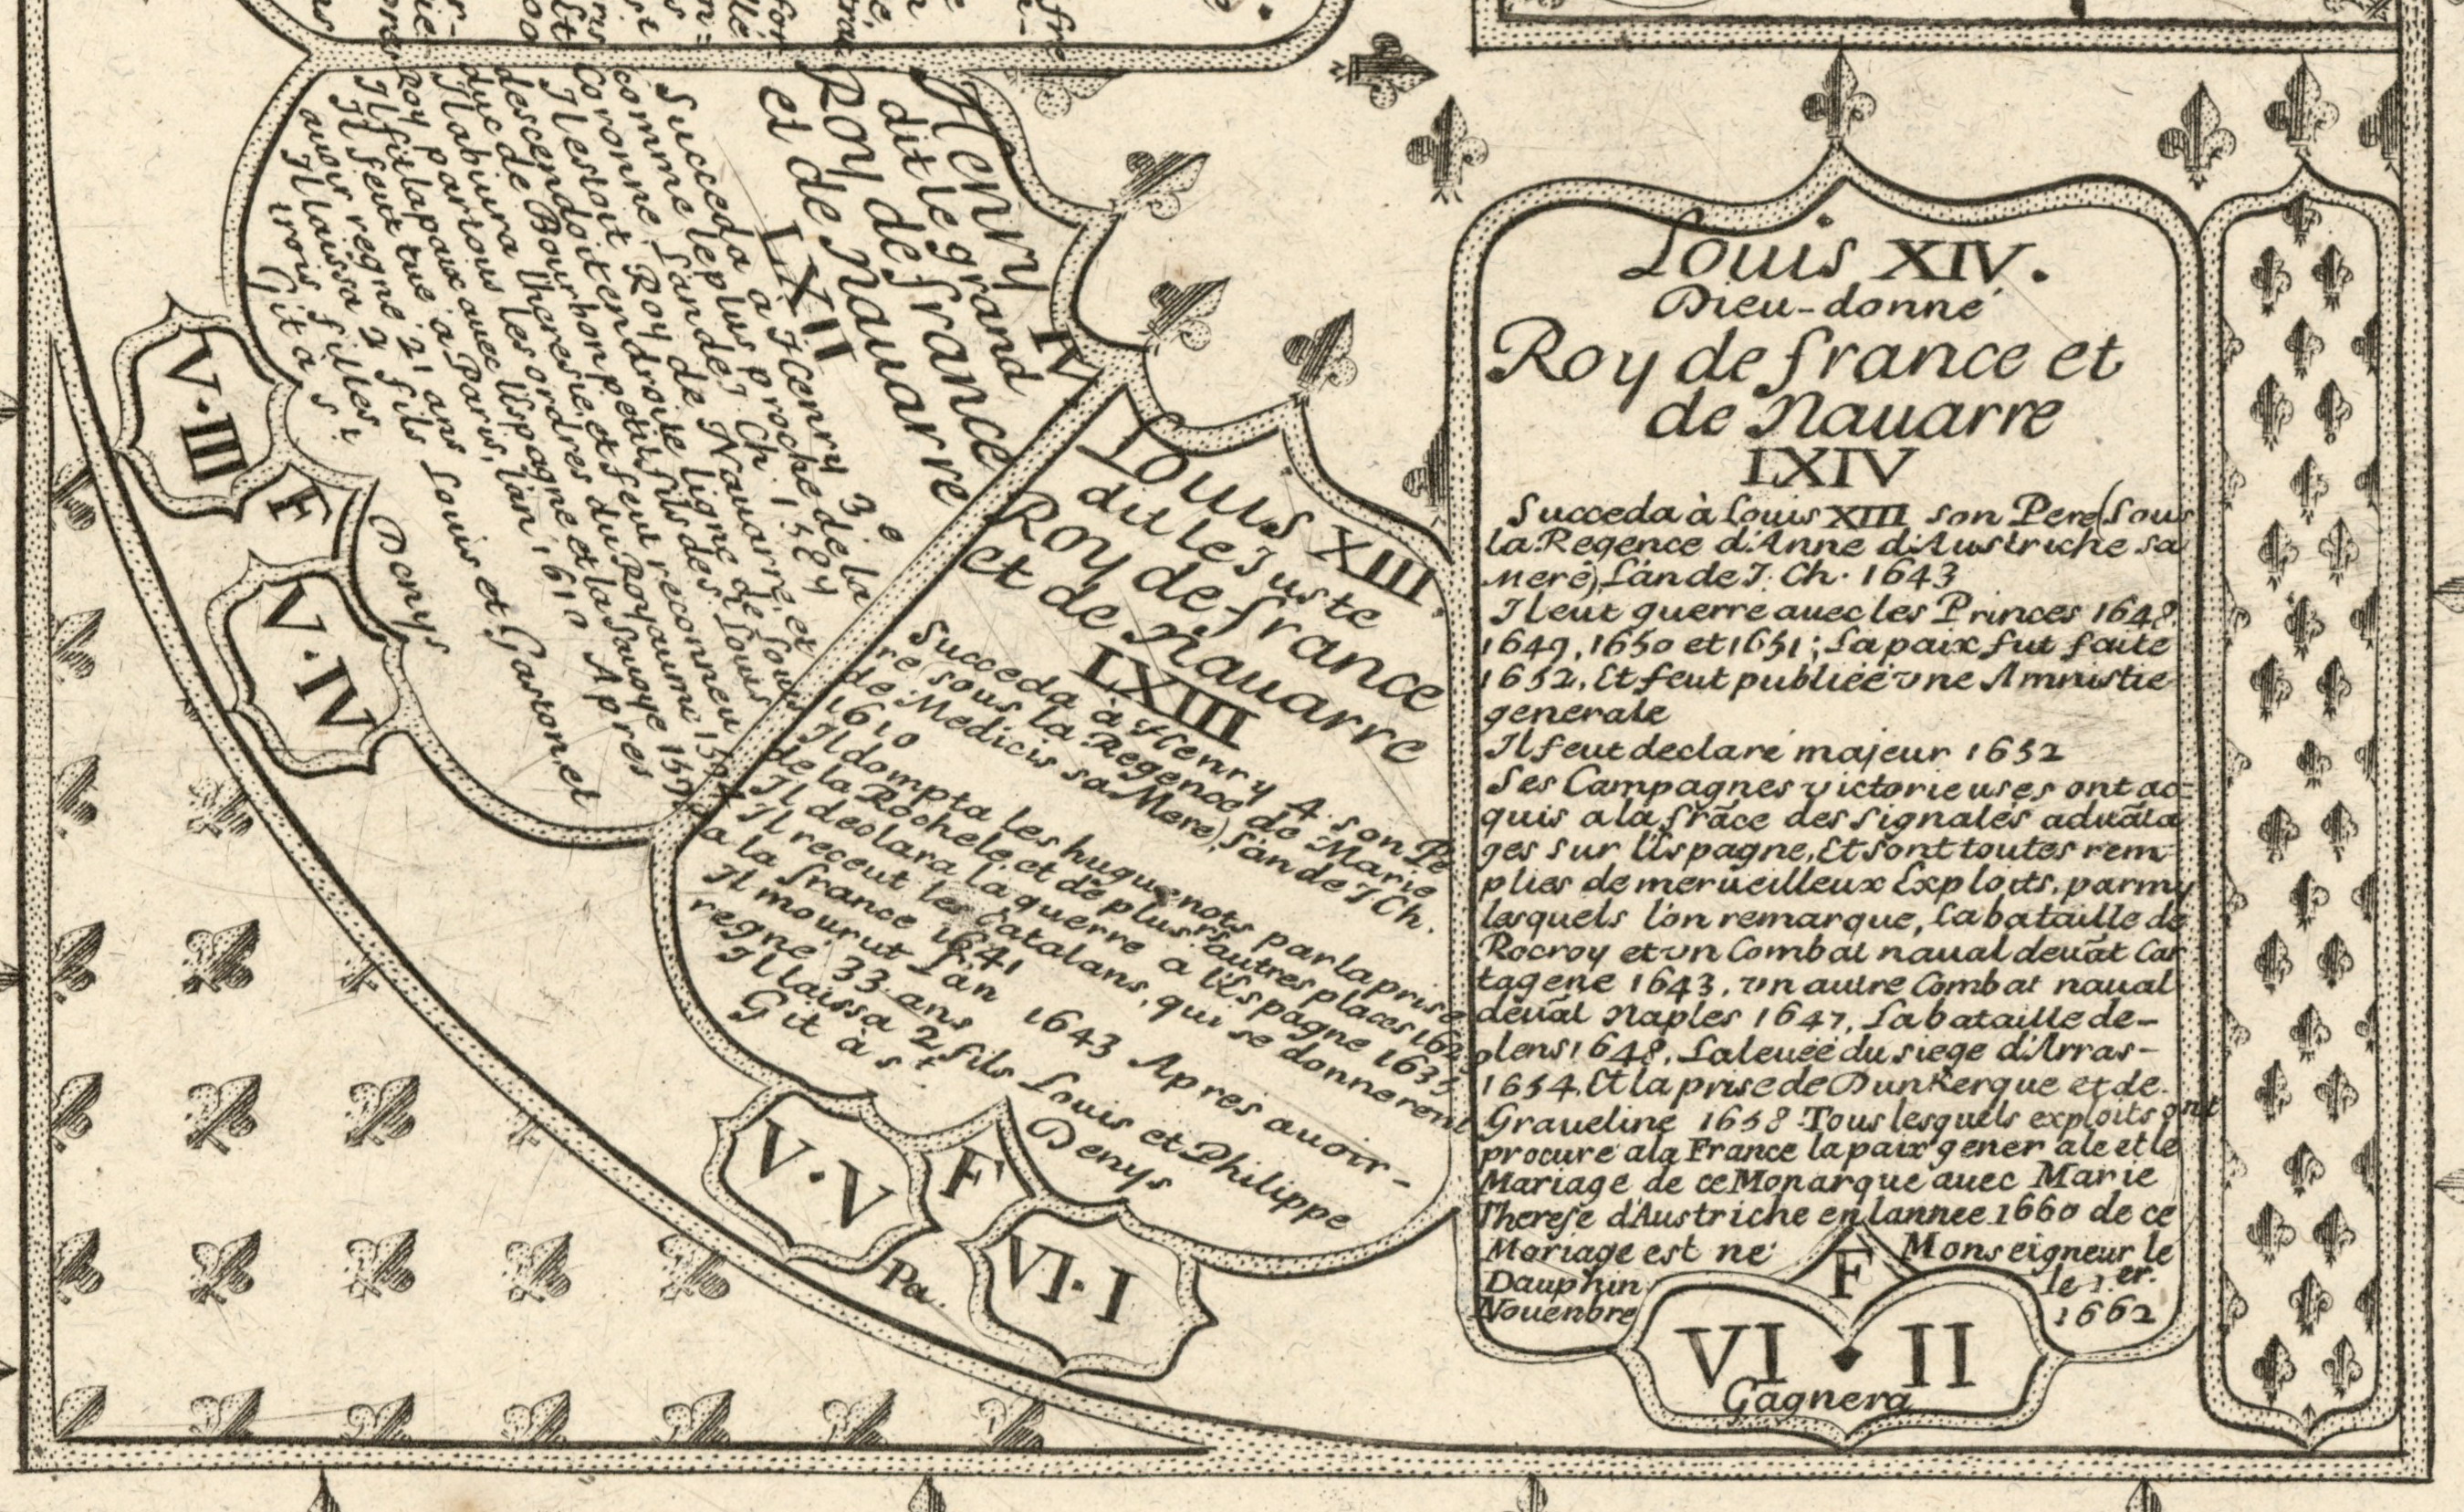 Henry IV
dit le grand
Roy de france
et de Nauarre
LXII
Succeda a Henry 3e
comme le plus proche de la
Coronne, L'an de J. Ch. 1589
Il estoit Roy de Nauarre, et
descendoit en droite ligne de Louis
duc de Bourbon petit fils de S. Louis
Il abiura lheresie, et feut reconneu
Roy par tous les ordres du Royaume
Il fit la paix auec l'Espagne et la Sauoye
Il feut tué a Paris, l'an 1610 Apres
auoir regné 21 ans
Il laissa 2 fils Louis et Gaston, et
trois filles
Git a S.t Denys
V·III
F
V·IV
Louis XIII.
dit le Juste
Roy de france
et de Nauarre
LXIII
Succeda a Henry 4 son Pe
re (sous la Regence de Marie
de Medicis sa Mere), L'an de J Ch.
1610
Il dompta les huguenots par la prise
de la Rochele, et de plusrs autres places
Il declara la guerre a l'Espagne 1635
Il receut les Catalans, qui se donnerent
a la france 1641
Il mourut L'an 1643 Apres auoir-
regné 33 ans
Il laissa 2 fils Louis et Philippe
Git à s.t Denys
V·V
F
Pa.
VI·I
Louis XIV.
Dieu-donné
Roy de france et
de Nauarre
LXIV
Succeda à Louis XIII son Pere (Sous
la Regence d'Anne d'Austriche sa
Mere), L'an de J. Ch. 1643
Il eut guerre auec les Princes 1648
1649, 1650 et 1651; La paix fut faite
1652, Et feut publieé vne Amnistie
generale
Il feut declaré majeur 1652
Ses Campagnes victorieuses ont ac=
quis a la frãce des signalés aduãta
ges sur l'Espagne, Et sont toutes rem-
plies de merueilleux Exploits, parmy
lesquels l'on remarque, La bataille de
Rocroy et vn Combat naual deuãt Car
tagene 1643, vn autre Combat naual
deuãt Naples 1647, La bataille de-
plens 1648, La leueé du siege d'Arras-
1654, Et la prise de Dunkerque et de
Graueline 1658 Tous lesquels exploits ont
procuré a la France la paix generale et le
Mariage de ce Monarque auec Marie
Therese d'Austriche en lannee 1660 de ce
Mariage est né Monseigneur le
Dauphin le 1er.
Nouenbre 1662
F
VI · II
Gagnera